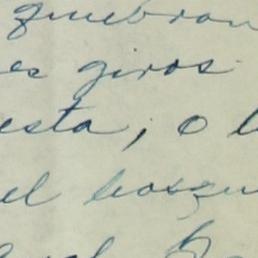 quebran
es giros
esta, o l
el bosqu